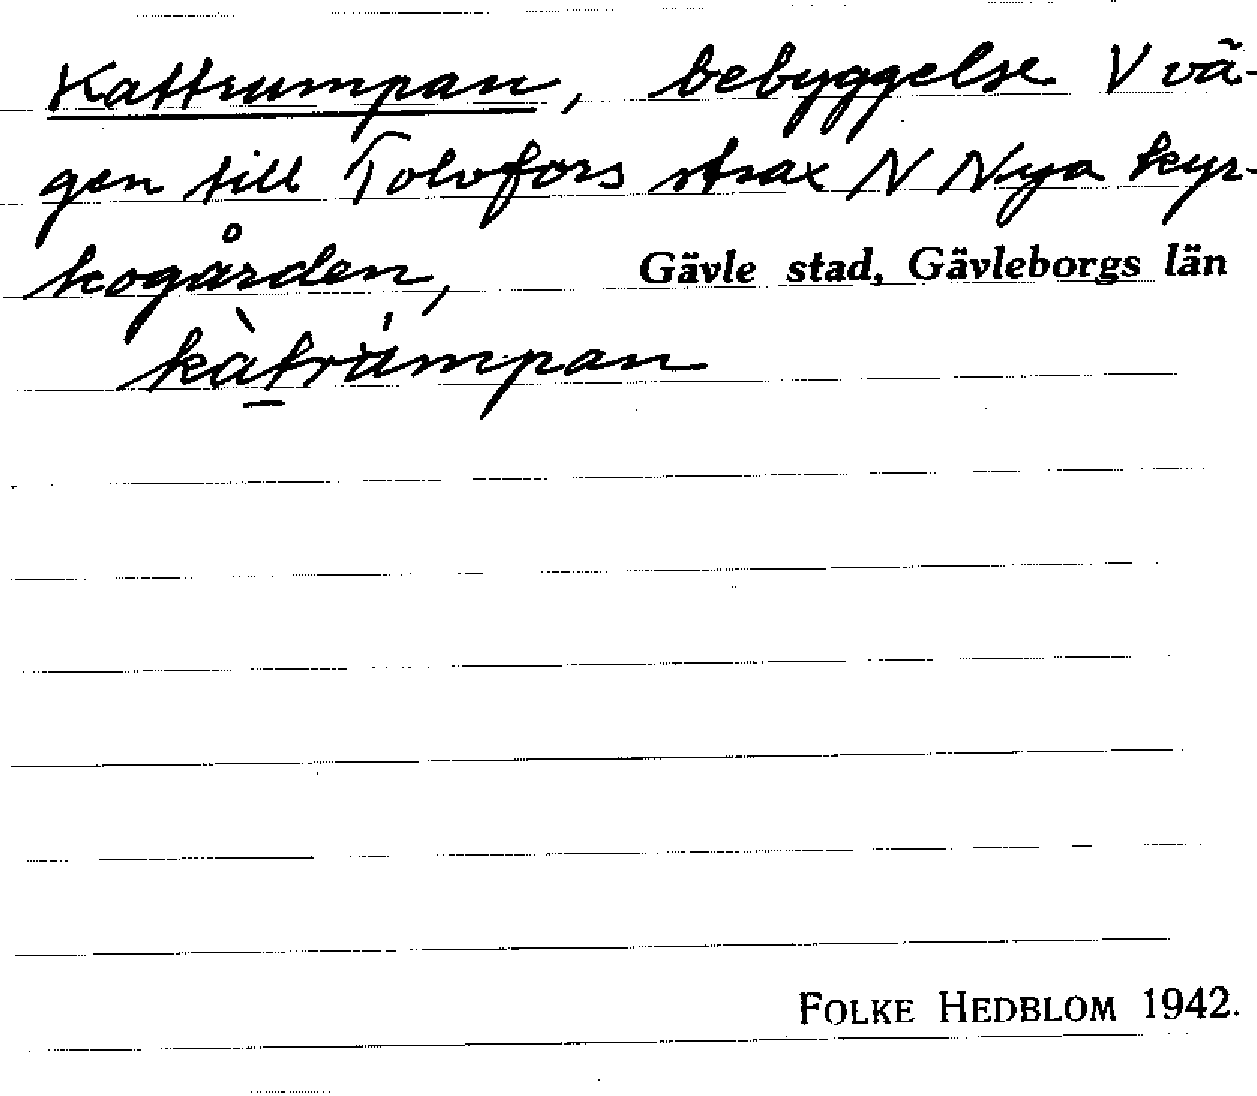 Kattrumpan, bebyggelse V vä-
gen till Tolvfors strax N Nya kyr-
kogården, Gävle stad, Gävleborgs län
kàtrùmpan
FOLKE HEDBLOM 1942.